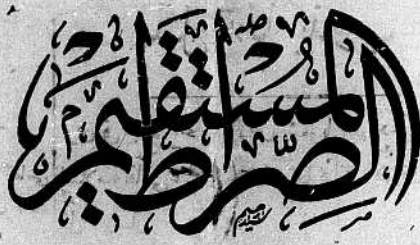 الصِّرَاطَ المُسْتَقِيمَ